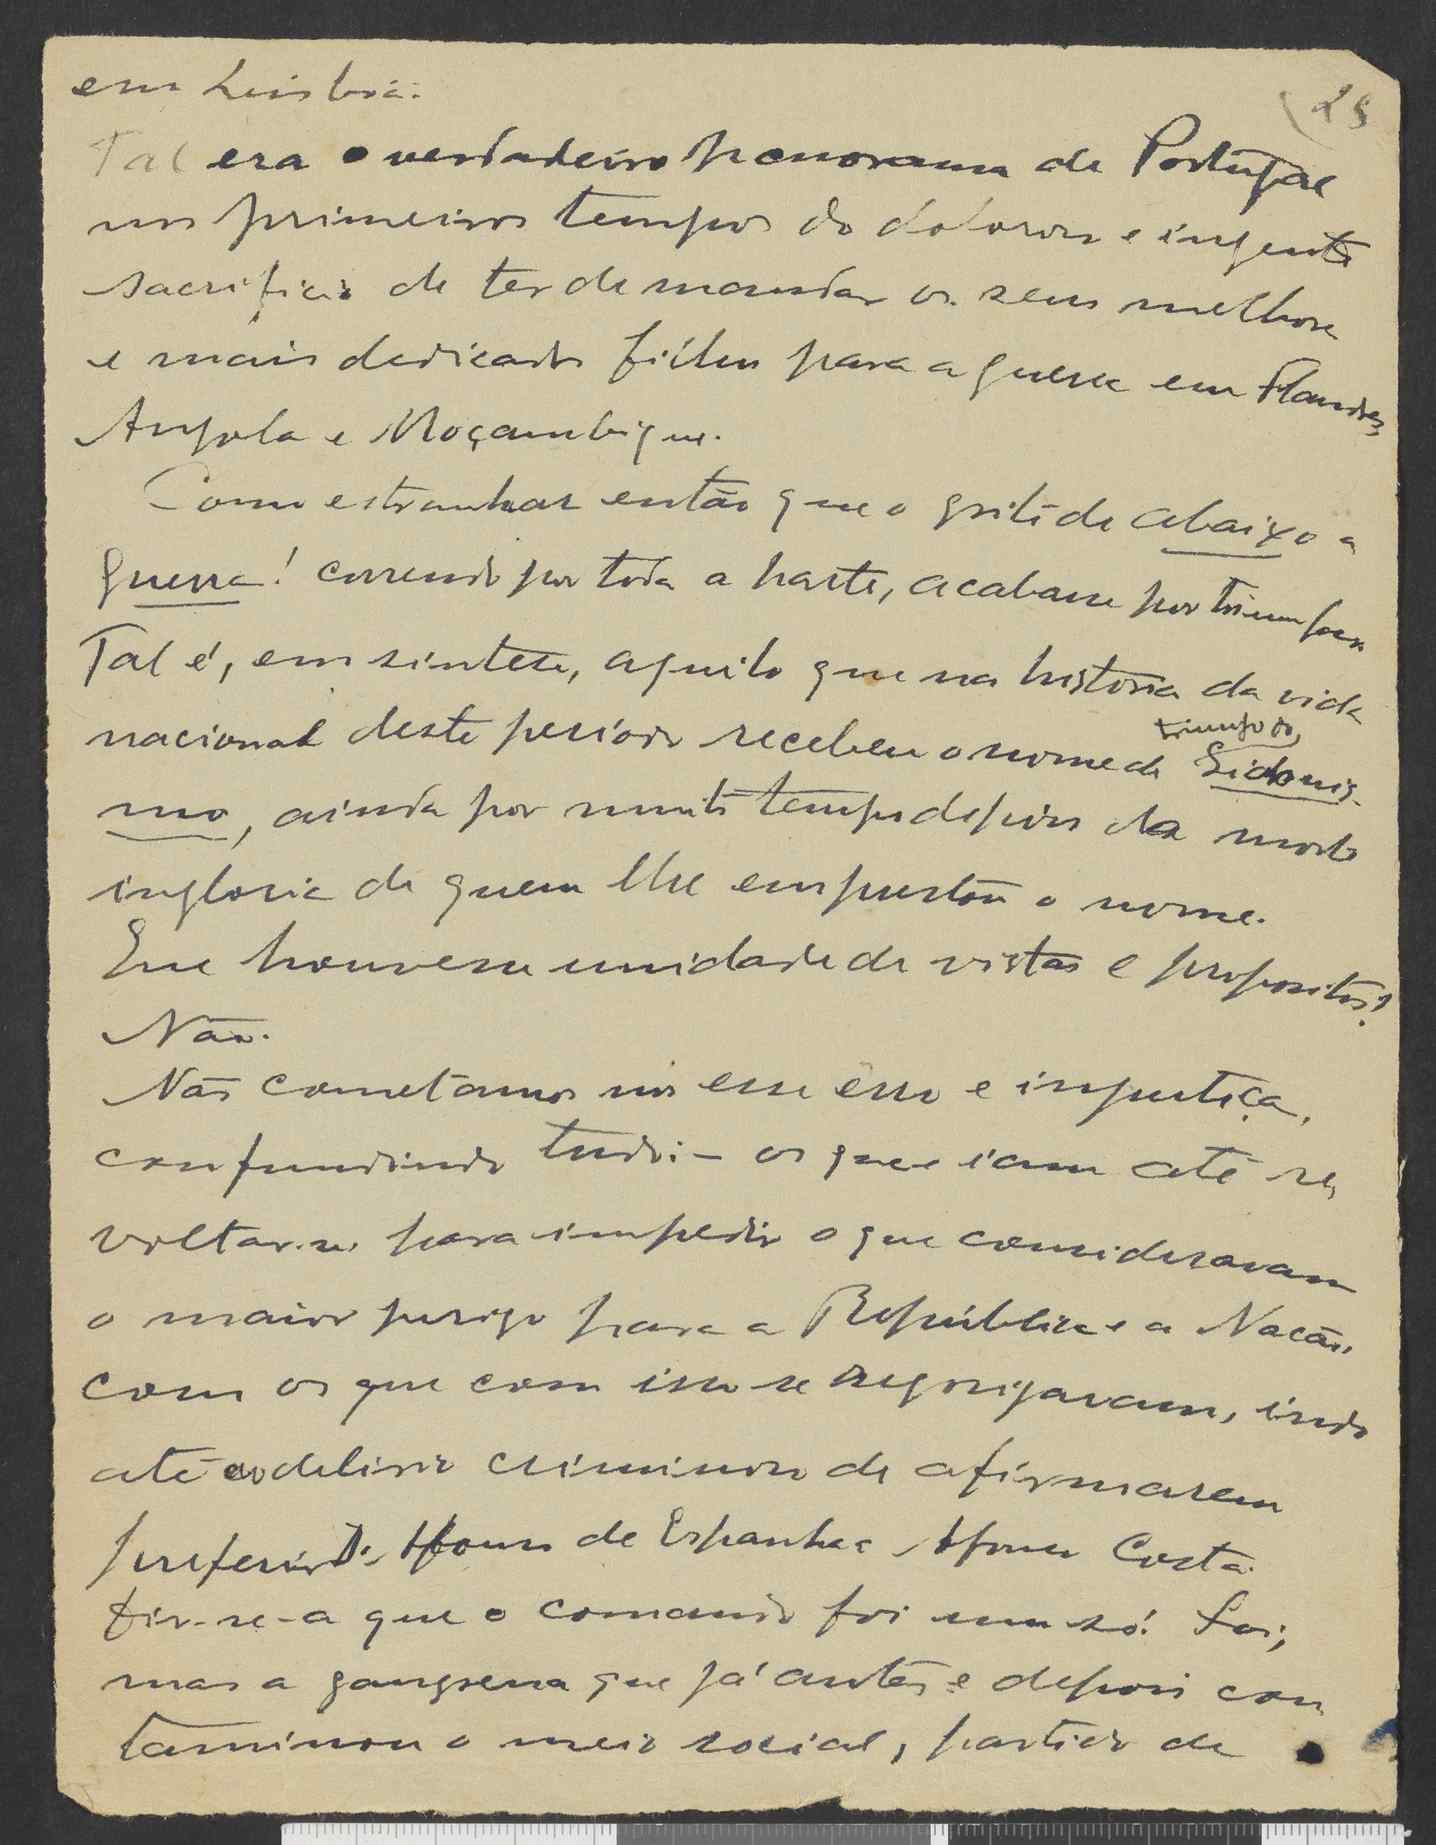 em Lisboa.
28
Tal era o verdadeiro panorama de Portugal
nos primeiros tempos do doloroso e ingente
sacrificio de ter de mandar os seus melhores
e mais dedicados filhos para a guerra em Flandres,
Angola e Moçambique.
Como estranhar então que o grito de abaixo a
guerra! correndo por toda a parte, acabasse por triunfar.
Tal é, em sintese, aquilo que na história da vida
nacional deste periodo recebeu o nome de triunfo do Sidonis-
mo, ainda por muito tempo depois da morte
ingloria de quem lhe emprestou o nome.
Que houvesse unidade de vistas e propositos?
Não.
Não cometamos nós esse êrro e injustiça,
confundindo tudo: – os que iam até re-
voltar-se para impedir o que consideravam
o maior perigo para a República e a Nação,
com os que com isso se regosijavam, indo
até ao delirio criminoso de afirmarem
preferir D. Afonso de Espanha a Afonso Costa.
Dir-se-a que o comando foi um só! Foi,
mas a gangrena que já antes e depois con
taminou o meio social, partido de